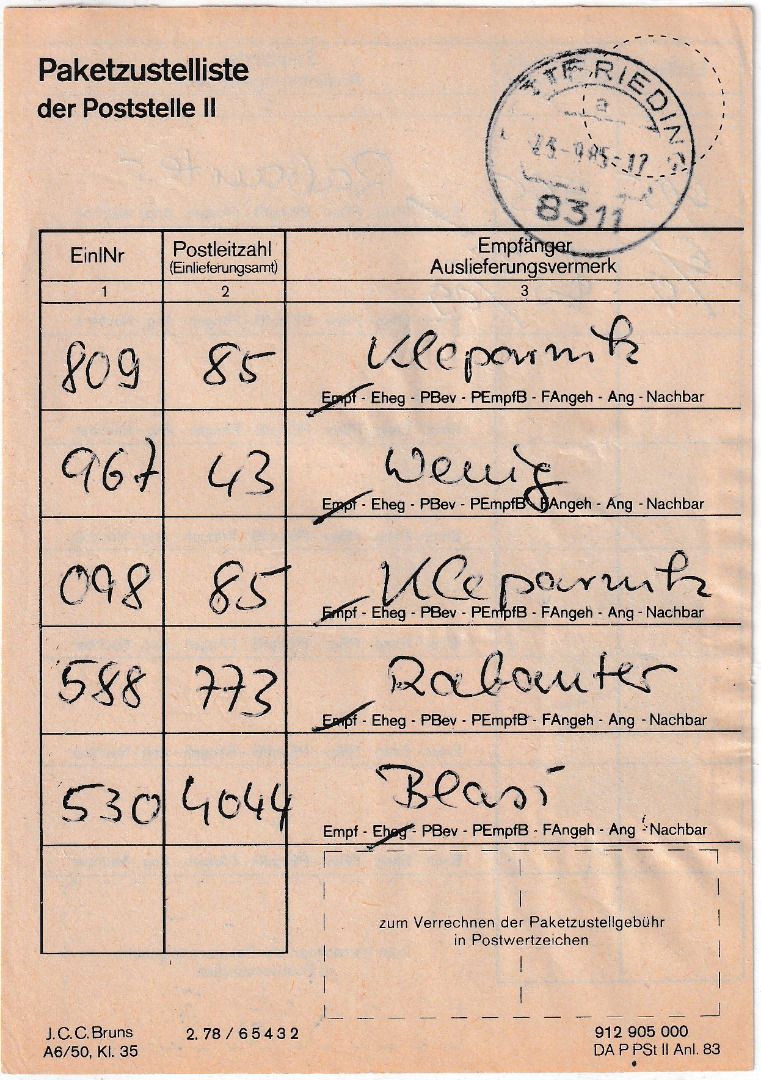 Paketzustelliste
der Poststelle II
TTFRIEDING
a
-9.85-17
8311
EinlNr
Postleitzahl
(Einlieferungsamt)
Empfänger
Auslieferungsvermerk
1 2 3
809 85 Kleparnik
Empf - Eheg - PBev - PEmpfB - FAngeh - Ang - Nachbar
967 43 Wenig
Empf - Eheg - PBev - PEmpfB - FAngeh - Ang - Nachbar
098 85 Kleparnik
Empf - Eheg - PBev - PEmpfB - FAngeh - Ang - Nachbar
588 773 Rabanter
Empf - Eheg - PBev - PEmpfB - FAngeh - Ang - Nachbar
530 4044 Blasi
Empf - Eheg - PBev - PEmpfB - FAngeh - Ang - Nachbar
zum Verrechnen der Paketzustellgebühr
in Postwertzeichen
J.C.C. Bruns 2. 78 / 6 5 4 3 2 912 905 000
A6/50, Kl. 35 DA P PSt II Anl. 83